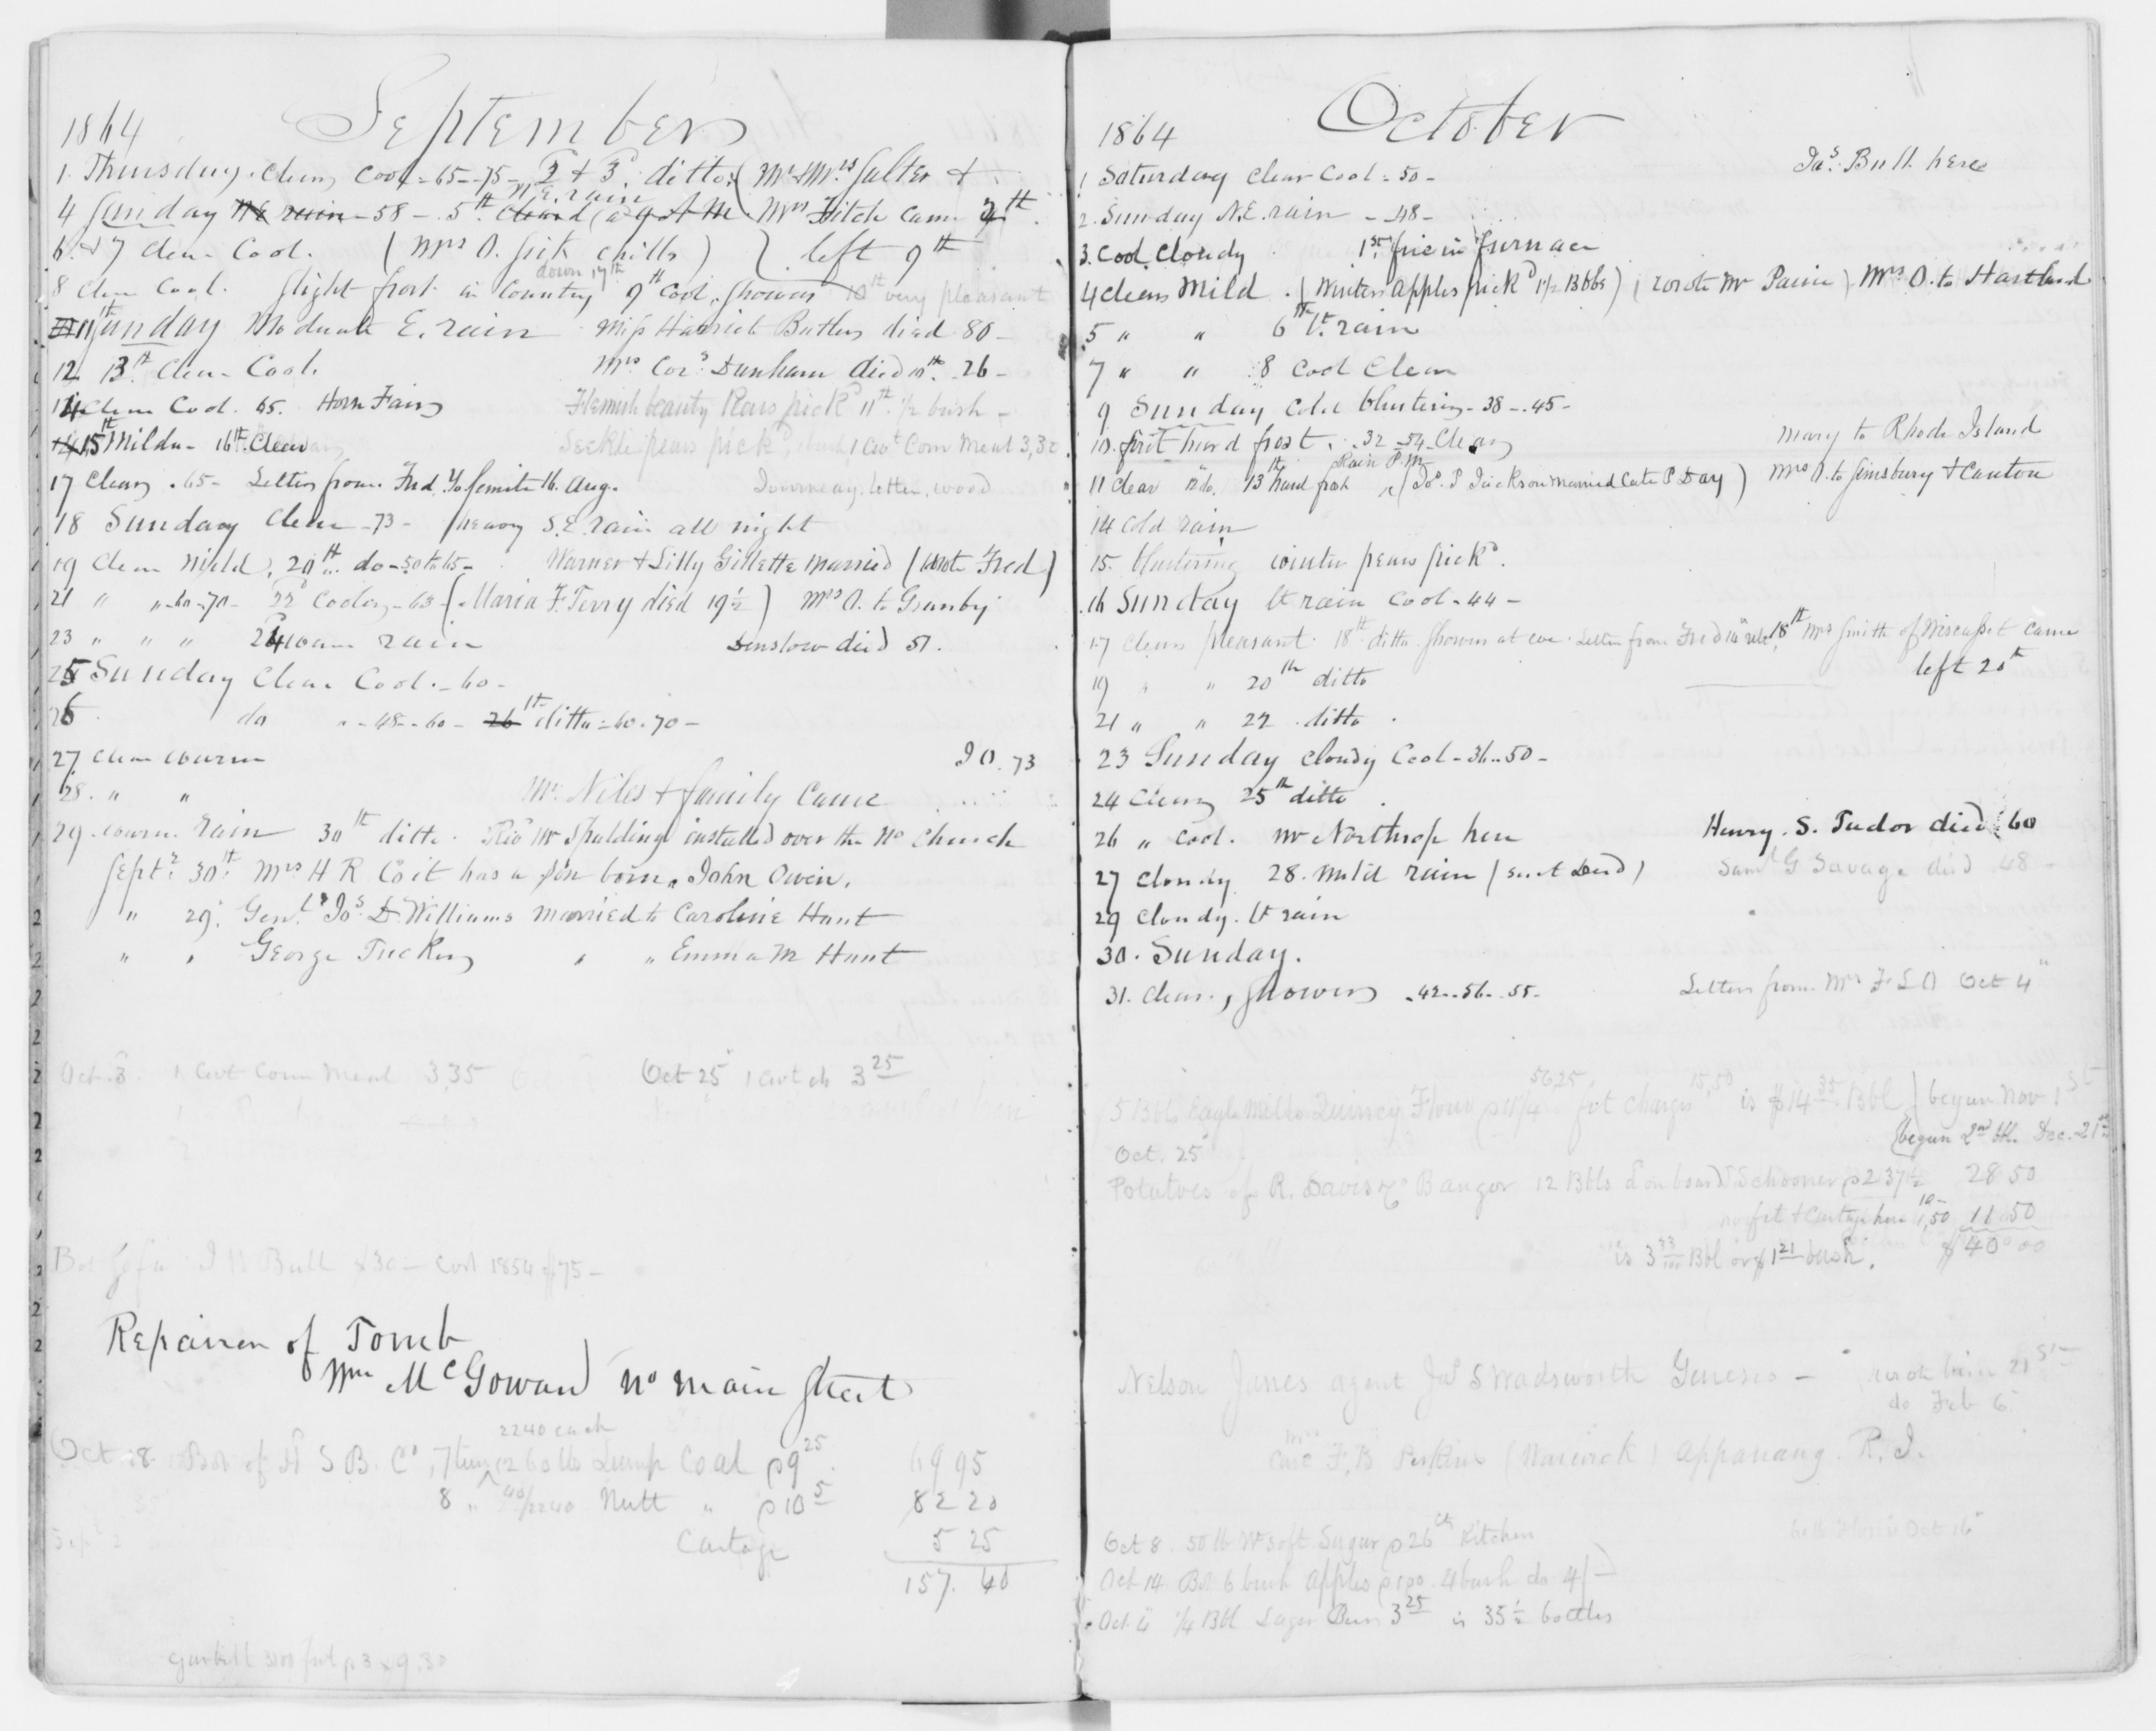 September
1864
1. Thursday. Clear Cool = 65-75- 2 & 3d. ditto ( Mr & Mrs Salter &
N.E. rain
4 Sunday 58 - 5th Mrs Fitch came 7th.
6 & 7 Clear Cool. ( Mrs O. sick chills ) left 9th
down 17th
8 Clear Cool. slight frost in Country 9th Cool, showers 10th very pleasant
11th Sunday Moderate E. rain Miss Harriet Butler died 80-
12 13th Clear Cool. Mrs Cors Dunham died 10th. 26-
14 Clear Cool. 65. Horse Fair Flemish beauty Pears pickd 11th. 1/2 bush -
15th Milder 16th Clear Seckle pears pickd, 1 Cwt Corn Meal 3,32
17 Clear . 65- Letter from Fred. Yosemite 16. Aug.
18 Sunday Clear -73- heavy S.E. rain all night
19 Clear Mild, 20th do -50 to 65- Warner & Lilly Gillette married ( wrote Fred )
21 " " 60-70- 22d Cooler - 63 - ( Maria F. Terry died 19 1/2 ) Mrs O. to Granby
23 " " " 24 warm rain Denslow died 51.
25 Sunday Clear Cool. - 60-
26 do " - 48 - 60 - ditto = 60-70-
27 Clear warm I O. 73
28. " " Mr. Niles & family Came
29. warm. rain 30th ditto. Revd Mr Spalding installed over the No Church
Septr 30th. Mrs H R Coit has a son born, John Owen.
" 29. Genl Jos D. Williams married to Caroline Hunt
" " George Tucker " " Emma M Hunt
Oct. 3. 1 Cwt Corn Meal 3,35 Oct 25 1 cwt do 3 25
Bot Sofa J H Bull $30 - Cost 1854 $75-
Repairer of Tomb
Wm McGowan No Main Street
2240 each
Oct 8. Bot of H S B. Co, 7 tons 1260 lbs Lump Coal @ 9 25 69 95
8 " 40/2240 Nutt " @ 10 5 82 20
Cartage 5 25
157. 40
October
1864
1 Saturday Clear Cool = 50 - Jas. Bull here
2. Sunday N.E. rain - 48 -
3. Cool Cloudy 1st. fire in furnace
4 Clear Mild . ( Winter apples pickd 1 1/2 Bbls ) ( wrote Mr Paine ) Mrs O. to Hartland
5 " " 6th lt. rain
7 " " 8 Cool Clear
9 Sunday Cold blustering - 38 -. 45 -
10. first hard frost . . 32 - 54 - Clear Mary to Rhode Island
Rain P.M.
11 Clear 12 do. 13th hard frost ( Jos. P Jackson married Cate P Day ) Mrs O. to Simsbury & Canton
14 Cold rain
15. blustering winter pears pickd.
16 Sunday lt rain Cool - 44 -
17 Clear pleasant 18th ditto Showers at eve. Letter from Fred 18th Mrs Smith of Wiscasset came
left 20th
19 " " 20th ditto
21 " " 22 . ditto .
23 Sunday Cloudy Cool - 36 .. 50 -
24 Clear 25th ditto .
26 " Cool. Mr Northrop here Henry. S. Tudor died 60
27 Cloudy 28. Mild rain Saml G Savage died 48 -
29 Cloudy. lt rain
30. Sunday.
31. Clear, showers . 42 .. 56 .. 55. Letters from Mrs F L O Oct 4"
56,25 15,50
5 Bbls Eagle Mills Quincy Flour @ 11/4 frt charges is $14 35 Bbl ) begun Nov 1st
begun 2nd bbl. Dec. 21st
Oct. 25
Potatoes of R. Davis & Co Bangor 12 Bbls on board Schooner @ 2 37 1/2 28 50
frt & Cartage here 10- 1,50 11 50
is 3 33/100 Bbl or $1 21 bush. $40 00
Nelson Janes agent Jas S Wadsworth Geneseo - wrote him 21st
do Feb 6
Mrs
Care F, B Perkins ( Warwick ) Appanaug. R. I.
Oct 8. 50 lb W soft Sugar @ 26 cts Kitchen
Oct 14 Bot 6 bush apples @ 1 00. 4 bush do 4/-
Oct 4 1/4 Bbl Lager Beer 3 25 is 35 1/2 bottles